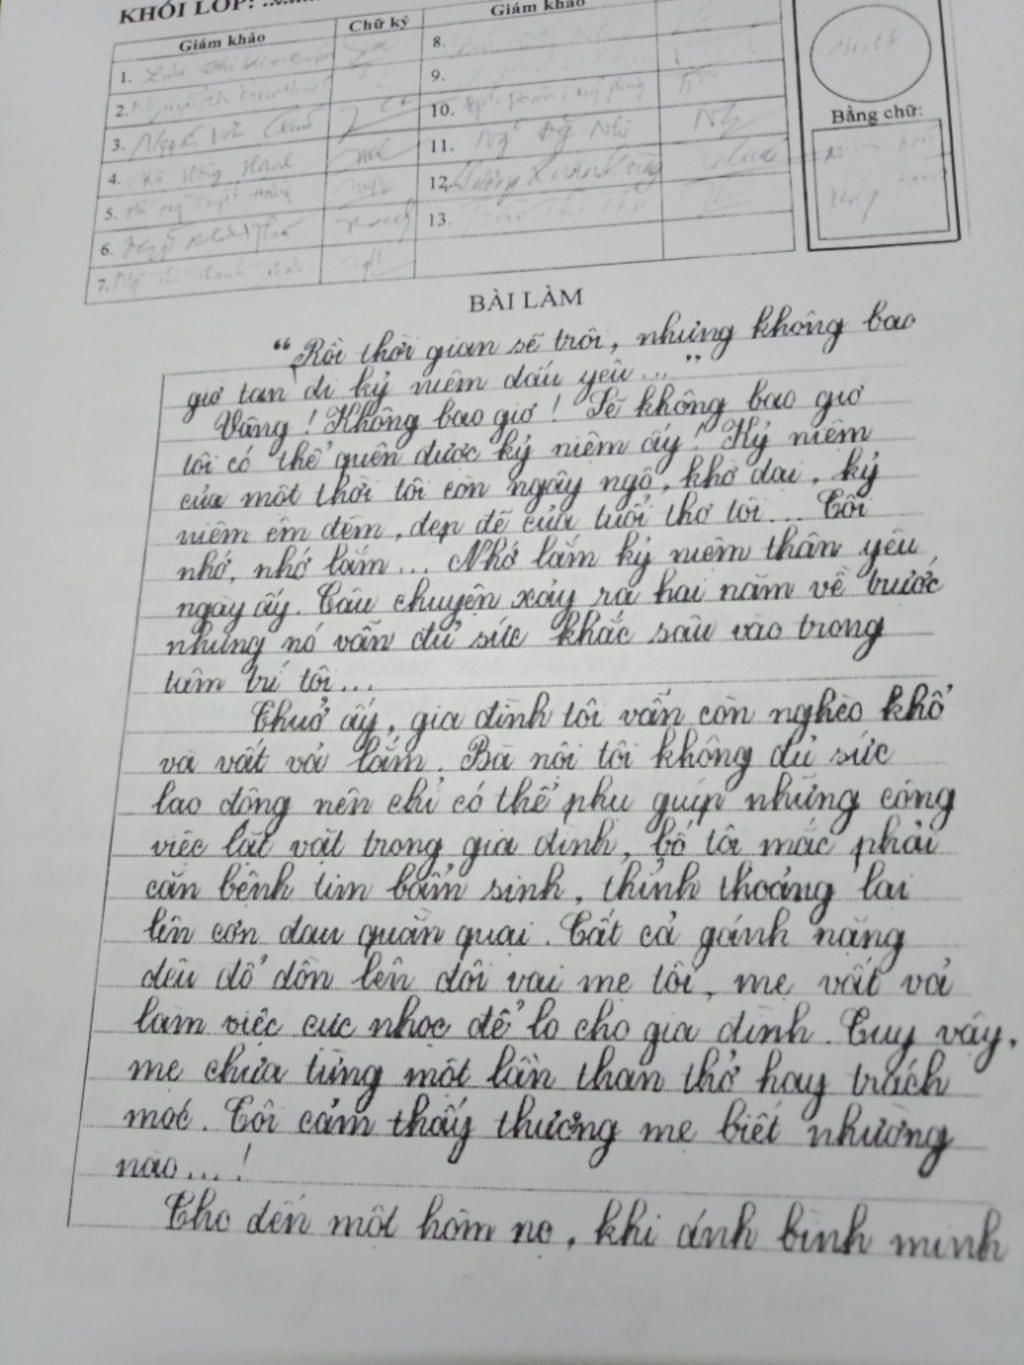 KHỐI LỚP:
Giám khảo Chữ ký Giám khảo
1.
2.
3. Nguyễn Văn
4. Hồng Hạnh
5.
6.
7.
8.
9.
10.
11. Ngô Nhi
12.
13.
Bằng chữ:
BÀI LÀM
"Rồi thời gian sẽ trôi, nhưng không bao
giờ tan đi kỷ niệm dấu yêu..."
Vâng! Không bao giờ! Sẽ không bao giờ
tôi có thể quên được kỷ niệm ấy! Kỷ niệm
của một thời tôi còn ngây ngô, khờ dại, kỷ
niệm êm đềm, đẹp đẽ của tuổi thơ tôi... Tôi
nhớ, nhớ lắm... Nhớ lắm kỷ niệm thân yêu
ngày ấy. Câu chuyện xảy ra hai năm về trước
nhưng nó vẫn đủ sức khắc sâu vào trong
tâm trí tôi...
Thuở ấy, gia đình tôi vẫn còn nghèo khổ
và vất vả lắm. Bà nội tôi không đủ sức
lao động nên chỉ có thể phụ guíp những công
việc lặt vặt trong gia đình, bố tôi mắc phải
căn bệnh tim bẩm sinh, thỉnh thoảng lại
lên cơn đau quằn quại. Tất cả gánh nặng
đều đổ dồn lên đôi vai mẹ tôi, mẹ vất vả
làm việc cực nhọc để lo cho gia đình. Tuy vậy,
mẹ chưa từng một lần than thở hay trách
móc. Tôi cảm thấy thương mẹ biết nhường
nào...!
Cho đến một hôm nọ, khi ánh bình minh